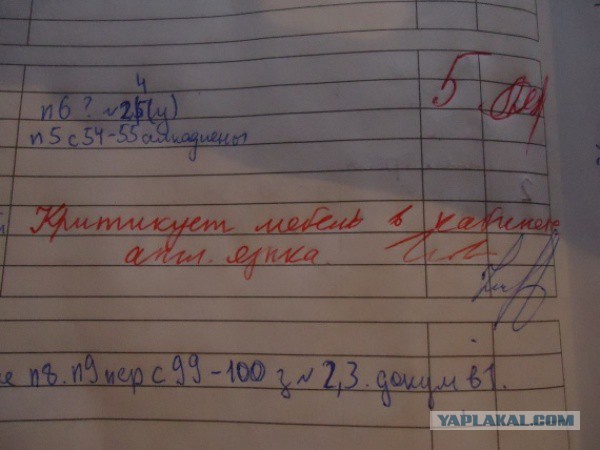 4
п6 ? №25(у) 5
п5 с 54-55 алкадиены
Критикует мебель в кабинете
англ. языка.
п8. п9 пер с 99-100 з№ 2,3. докум в 1.
YAPLAKAL.COM